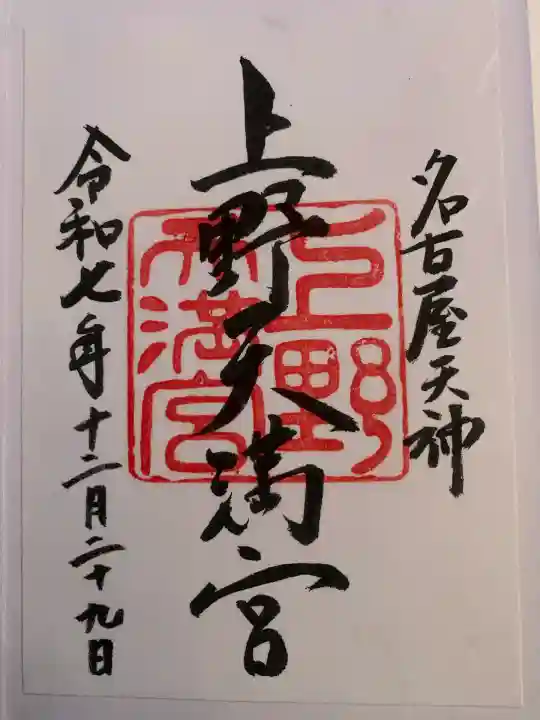 名古屋天神
上野天満宮
上野
天満宮
令和七年十二月二十九日